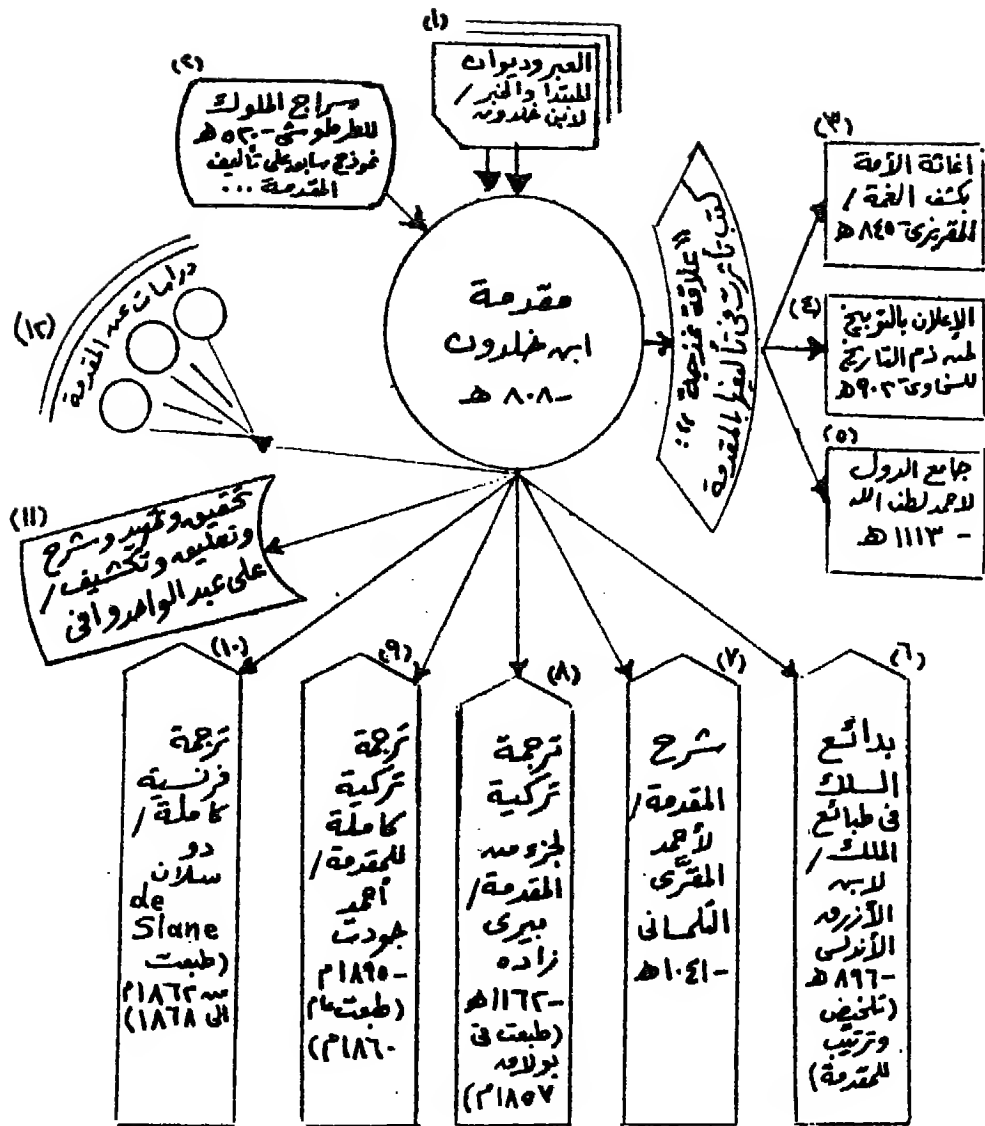 (١)
العبر وديوان
المبتدا والخبر /
لابن خلدون
(٢)
سراج الملوك
للطرطوشى -٥٢٠ هـ
نموذج سابق على تأليف
المقدمة ...
مقدمة
ابن خلدون
-٨٠٨ هـ
كتب تأثرت فى تأليفها بالمقدمة
"علاقة نموذجية":
(٣)
اغاثة الأمة
بكشف الغمة /
المقريزى -٨٤٥ هـ
(٤)
الإعلان بالتوبيخ
لمن ذم التاريخ
للسخاوى -٩٠٢ هـ
(٥)
جامع الدول
لاحمد لطف الله
- ١١١٣ هـ
(٦)
بدائع
السلك
فى طبائع
الملك /
لابن
الأزرق
الأندلسى
-٨٩٦ هـ
(تلخيص
وترتيب
للمقدمة)
(٧)
شرح
المقدمة /
لأحمد
المقرَّى
التلمسانى
-١٠٤١ هـ
(٨)
ترجمة
تركية
لجزء من
المقدمة /
بيرى
زاده
-١١٦٢ هـ
(طبعت فى
بولاق
١٨٥٧م)
(٩)
ترجمة
تركية
كاملة
للمقدمة /
أحمد
جودت
-١٨٩٥م
(طبعت عام
١٨٦٠م)
(١٠)
ترجمة
فرنسية
كاملة /
دو
سلان
de
Slane
(طبعت
من ١٨٦٢م
الى ١٨٦٨)
(١١)
تحقيق وتمهيد وشرح
وتعليق وتكشيف /
على عبد الواحد وافى
(١٢)
دراسات عن المقدمة